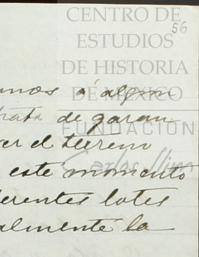 CENTRO DE
ESTUDIOS
DE HISTORIA
DE MÉXICO
FUNDACIÓN
Carlos Slim
56
amos a algun
trata de garan
er el terreno
este momento
ferentes lotes
almente la